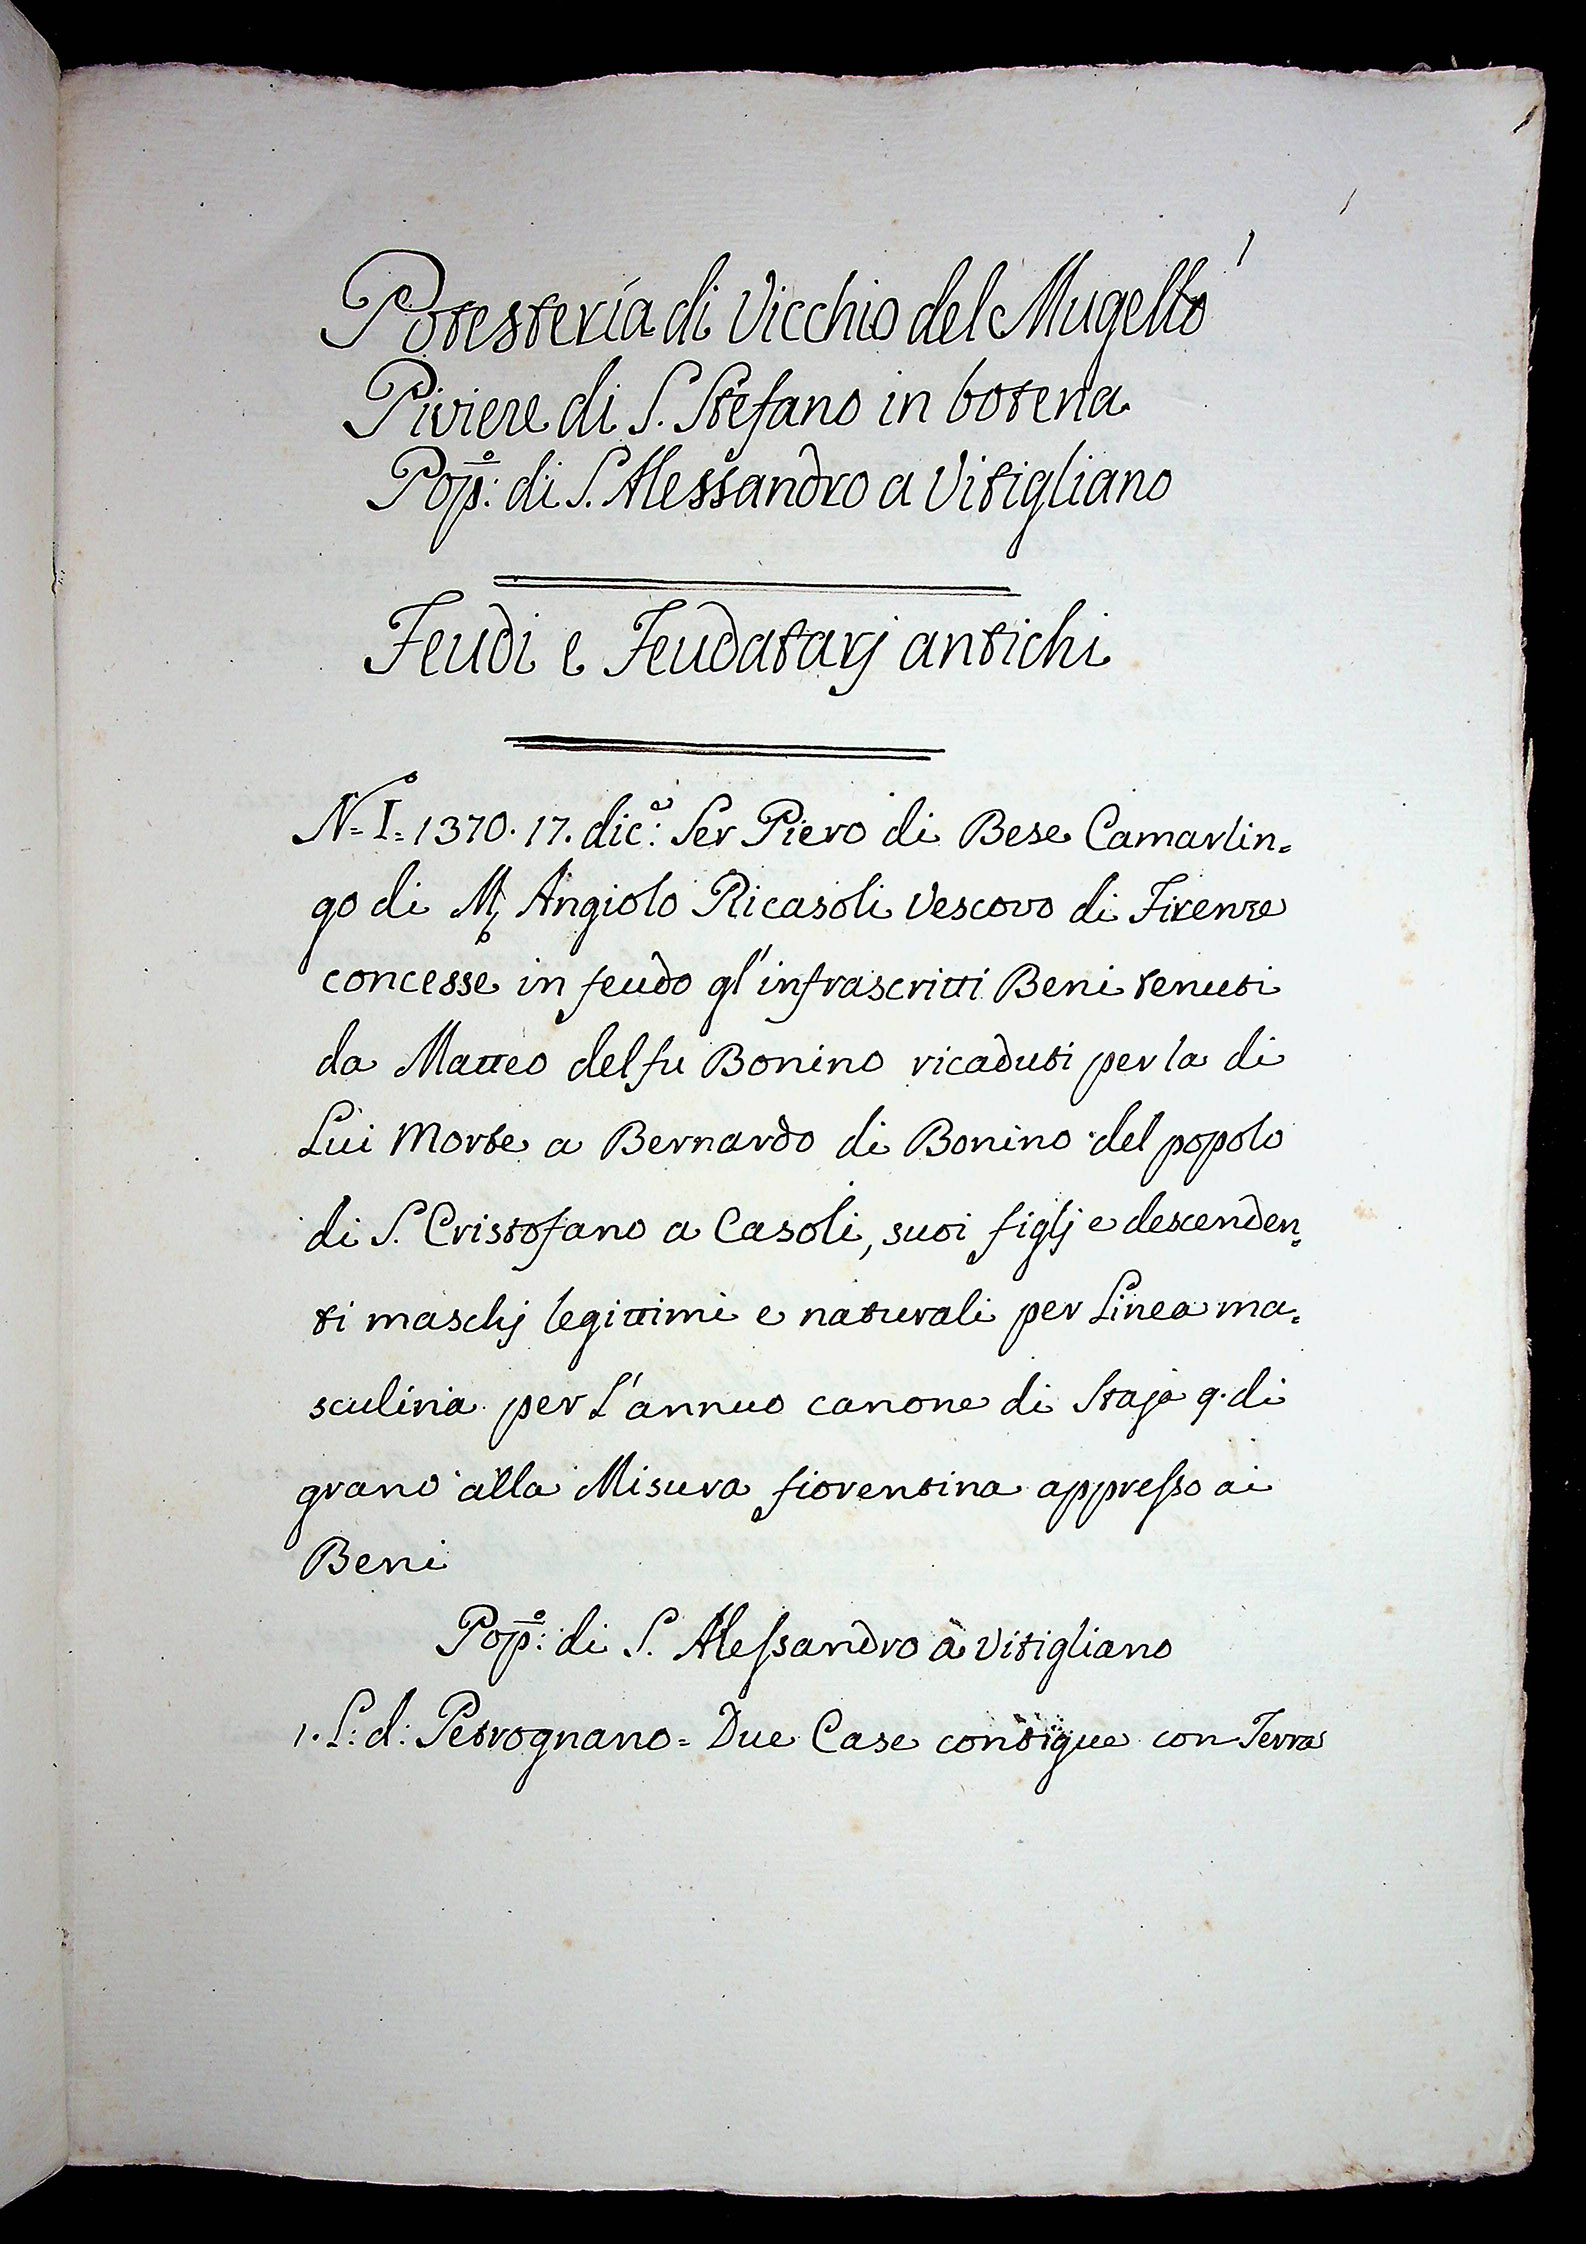 1
Potesteria di Vicchio del Mugello
Piviere di S. Stefano in botena
Pop̅º: di S. Alessandro a Vitigliano
Feudi e Feudatarj antichi
Nº= I= 1370. 17. dicº: Ser Piero di Bese Camarlin=
go di M. Angiolo Ricasoli Vescovo di Firenze
concesse in feudo gl'infrascritti Beni tenuti
da Matteo del fu Bonino ricaduti per la di
Lui Morte a Bernardo di Bonino del popolo
di S. Cristofano a Casoli, suoi figlj e descenden=
ti maschj legittimi e naturali per Linea ma=
sculina per L'annuo canone di Staja 9. di
grano alla Misura fiorentina appresso ai
Beni
Pop̅º: di S. Alessandro a Vitigliano
1. L: d: Petrognano= Due Case contigue con Terra